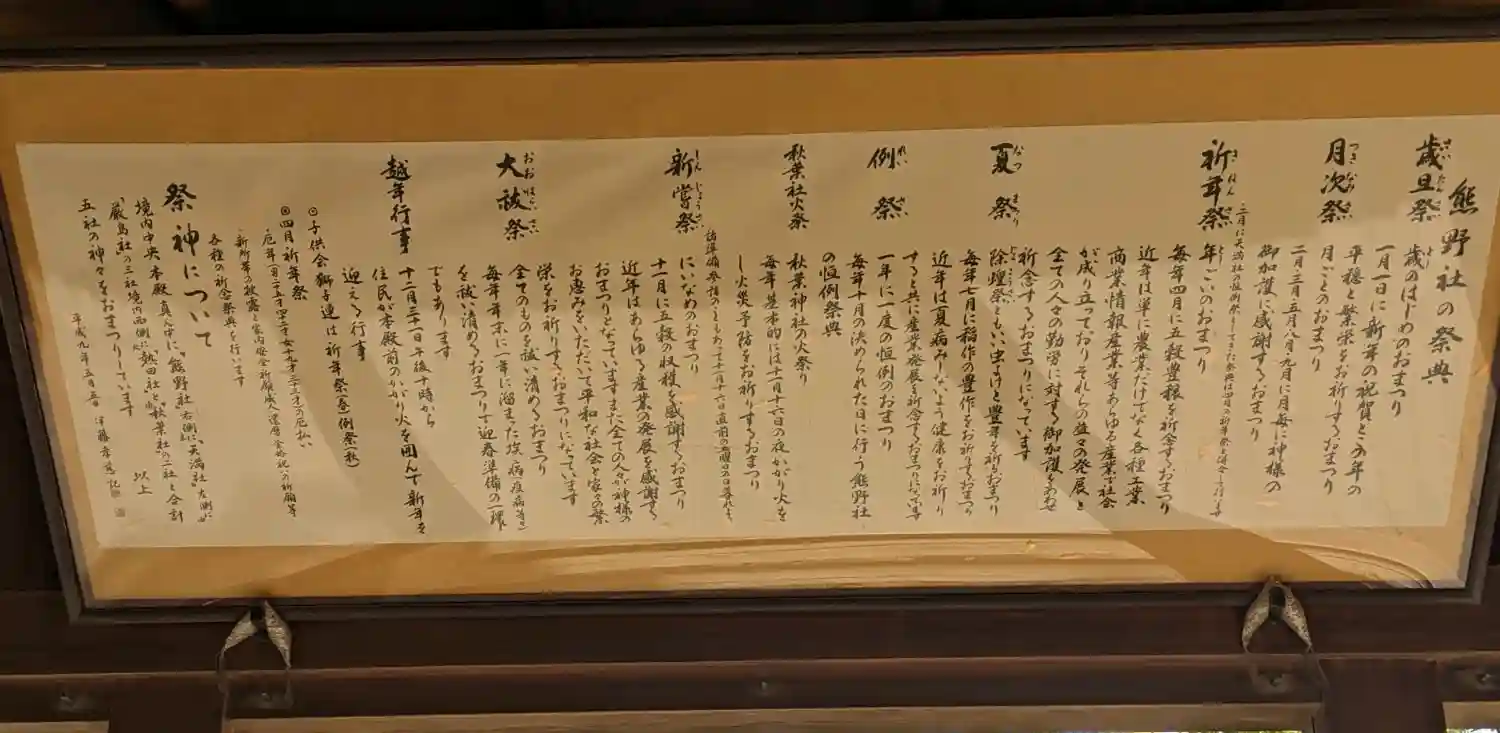 熊野社の祭典
歳旦祭
さいたんさい
歳のはじめのおまつり
一月一日に新年の祝賀とこの年の
平穏と繁栄をお祈りするおまつり
月次祭
つきなみさい
月ごとのおまつり
二月三月五月八月九月に月毎に神様の
御加護に感謝するおまつり
祈年祭
きねんさい
年ごいのおまつり
毎年四月に五穀豊穣を祈念するおまつり
近年は単に農業だけでなく各種工業
商業情報産業等あらゆる産業で社会
が成り立っておりそれらの益々の発展と
全ての人々の勤労に対する御加護をあわせ
祈念するおまつりになっています
夏祭
なつまつり
除蝗祭ともいい虫よけと豊年を祈るおまつり
毎年七月に稲作の豊作をお祈りするおまつり
近年は夏病みしないよう健康をお祈り
すると共に産業発展を祈念するおまつりになっています
例祭
れいさい
一年に一度の恒例のおまつり
毎年十月の決められた日に行う熊野社
の恒例祭典
秋葉社火祭
秋葉神社の火祭り
毎年基本的には十一月十六日の夜かがり火を
し火災予防をお祈りするおまつり
新嘗祭
しんじょうさい
にいなめのおまつり
十一月に五穀の収穫を感謝するおまつり
近年はあらゆる産業の発展を感謝する
おまつりとなっていますまた全ての人々が神様の
お恵みをいただいて平和な社会と家々の繁
栄をお祈りするおまつりになっています
大祓祭
おおはらいさい
全てのものを祓い清めるおまつり
毎年年末に一年に溜まった埃、病(疫病等)
を祓い清めるおまつりで迎春準備の一環
でもあります
越年行事
十二月三十一日午後十時から
住民が本殿前のかがり火を囲んで新年を
迎える行事
◎子供会獅子連は祈年祭(春)例祭(秋)
◎四月祈年祭
各種の祈念祭典を行います
祭神について
境内中央本殿真ん中に"熊野社"右側に"天満社"左側が
"厳島社"の三社境内西側に"熱田社"と"秋葉社"の二社と合計
五社の神々をおまつりしています
以上
平成九年五月吉日